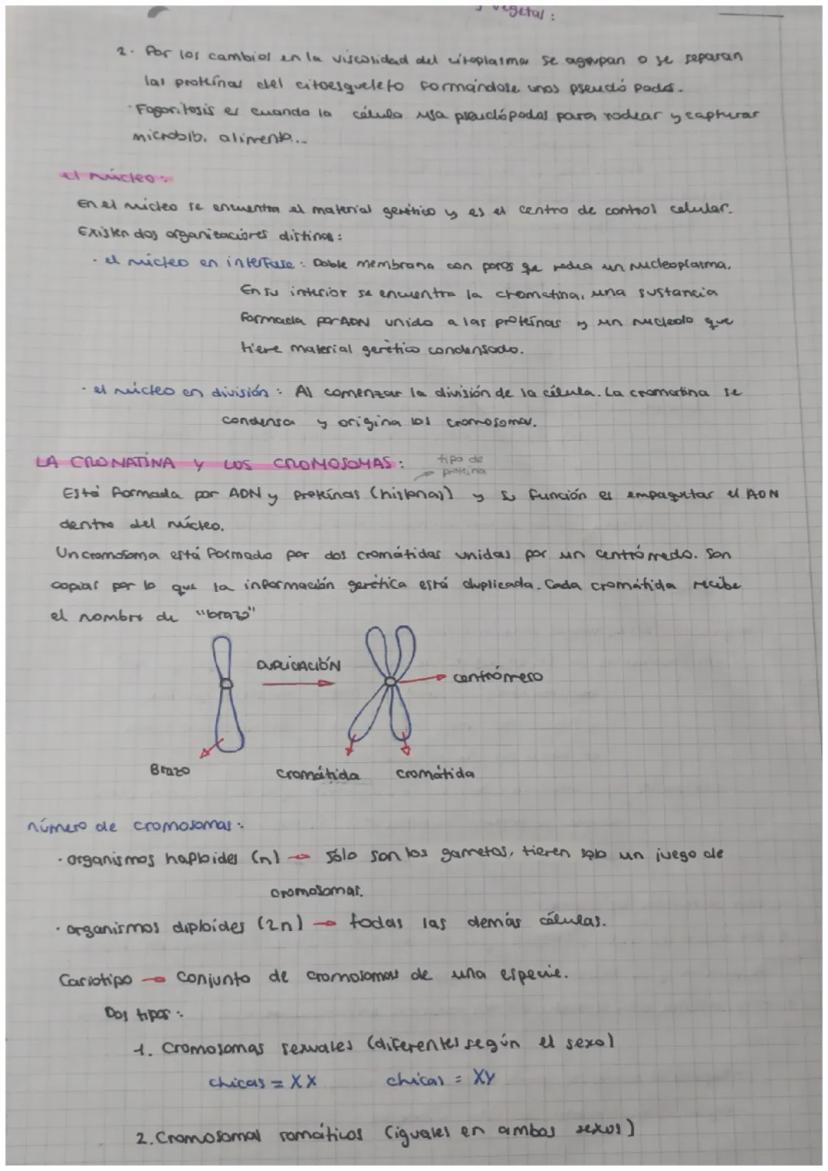 vegetal:
2. Por los cambios en la viscosidad del citoplasma se agrupan o se separan
las proteínas del citoesqueleto formándose unos pseudó podos.
·Fagocitosis es cuando la célula usa pseudópodos para rodear y capturar
microbio, alimento...
el núcleo:
En el núcleo se encuentra el material genético y es el centro de control celular.
Existen dos organizaciones distinas:
· el núcleo en interfase: Doble membrana con poros que rodea un nucleoplasma.
En su interior se encuentra la cromatina, una sustancia
formada por ADN unido a las proteínas y un nucleolo que
tiene material genético condensado.
· el núcleo en división: Al comenzar la división de la célula. La cromatina se
condensa y origina los cromosomas.
LA CROMATINA Y LOS CROMOSOMAS:
tipo de
proteína
Está formada por ADN y proteínas (histonas) y su función es empaquetar el ADN
dentro del núcleo.
Un cromosoma está formado por dos cromátidas unidas por un centrómedo. Son
copias por lo que la información genética está duplicada. Cada cromátida recibe
el nombre de "brazo"
DUPLICACIÓN
centrómero
Brazo
cromátida
cromátida
número de cromosomas:
· organismos haploides (n) → sólo son los gametos, tienen solo un juego de
cromosomas.
· organismos diploides (2n) → todas las demás células.
Cariotipo → conjunto de cromosomas de una especie.
Dos tipos:
1. Cromosomas sexuales (diferentes según el sexo)
chicas = XX
chicas = XY
2. Cromosomas somáticos (iguales en ambos sexos)